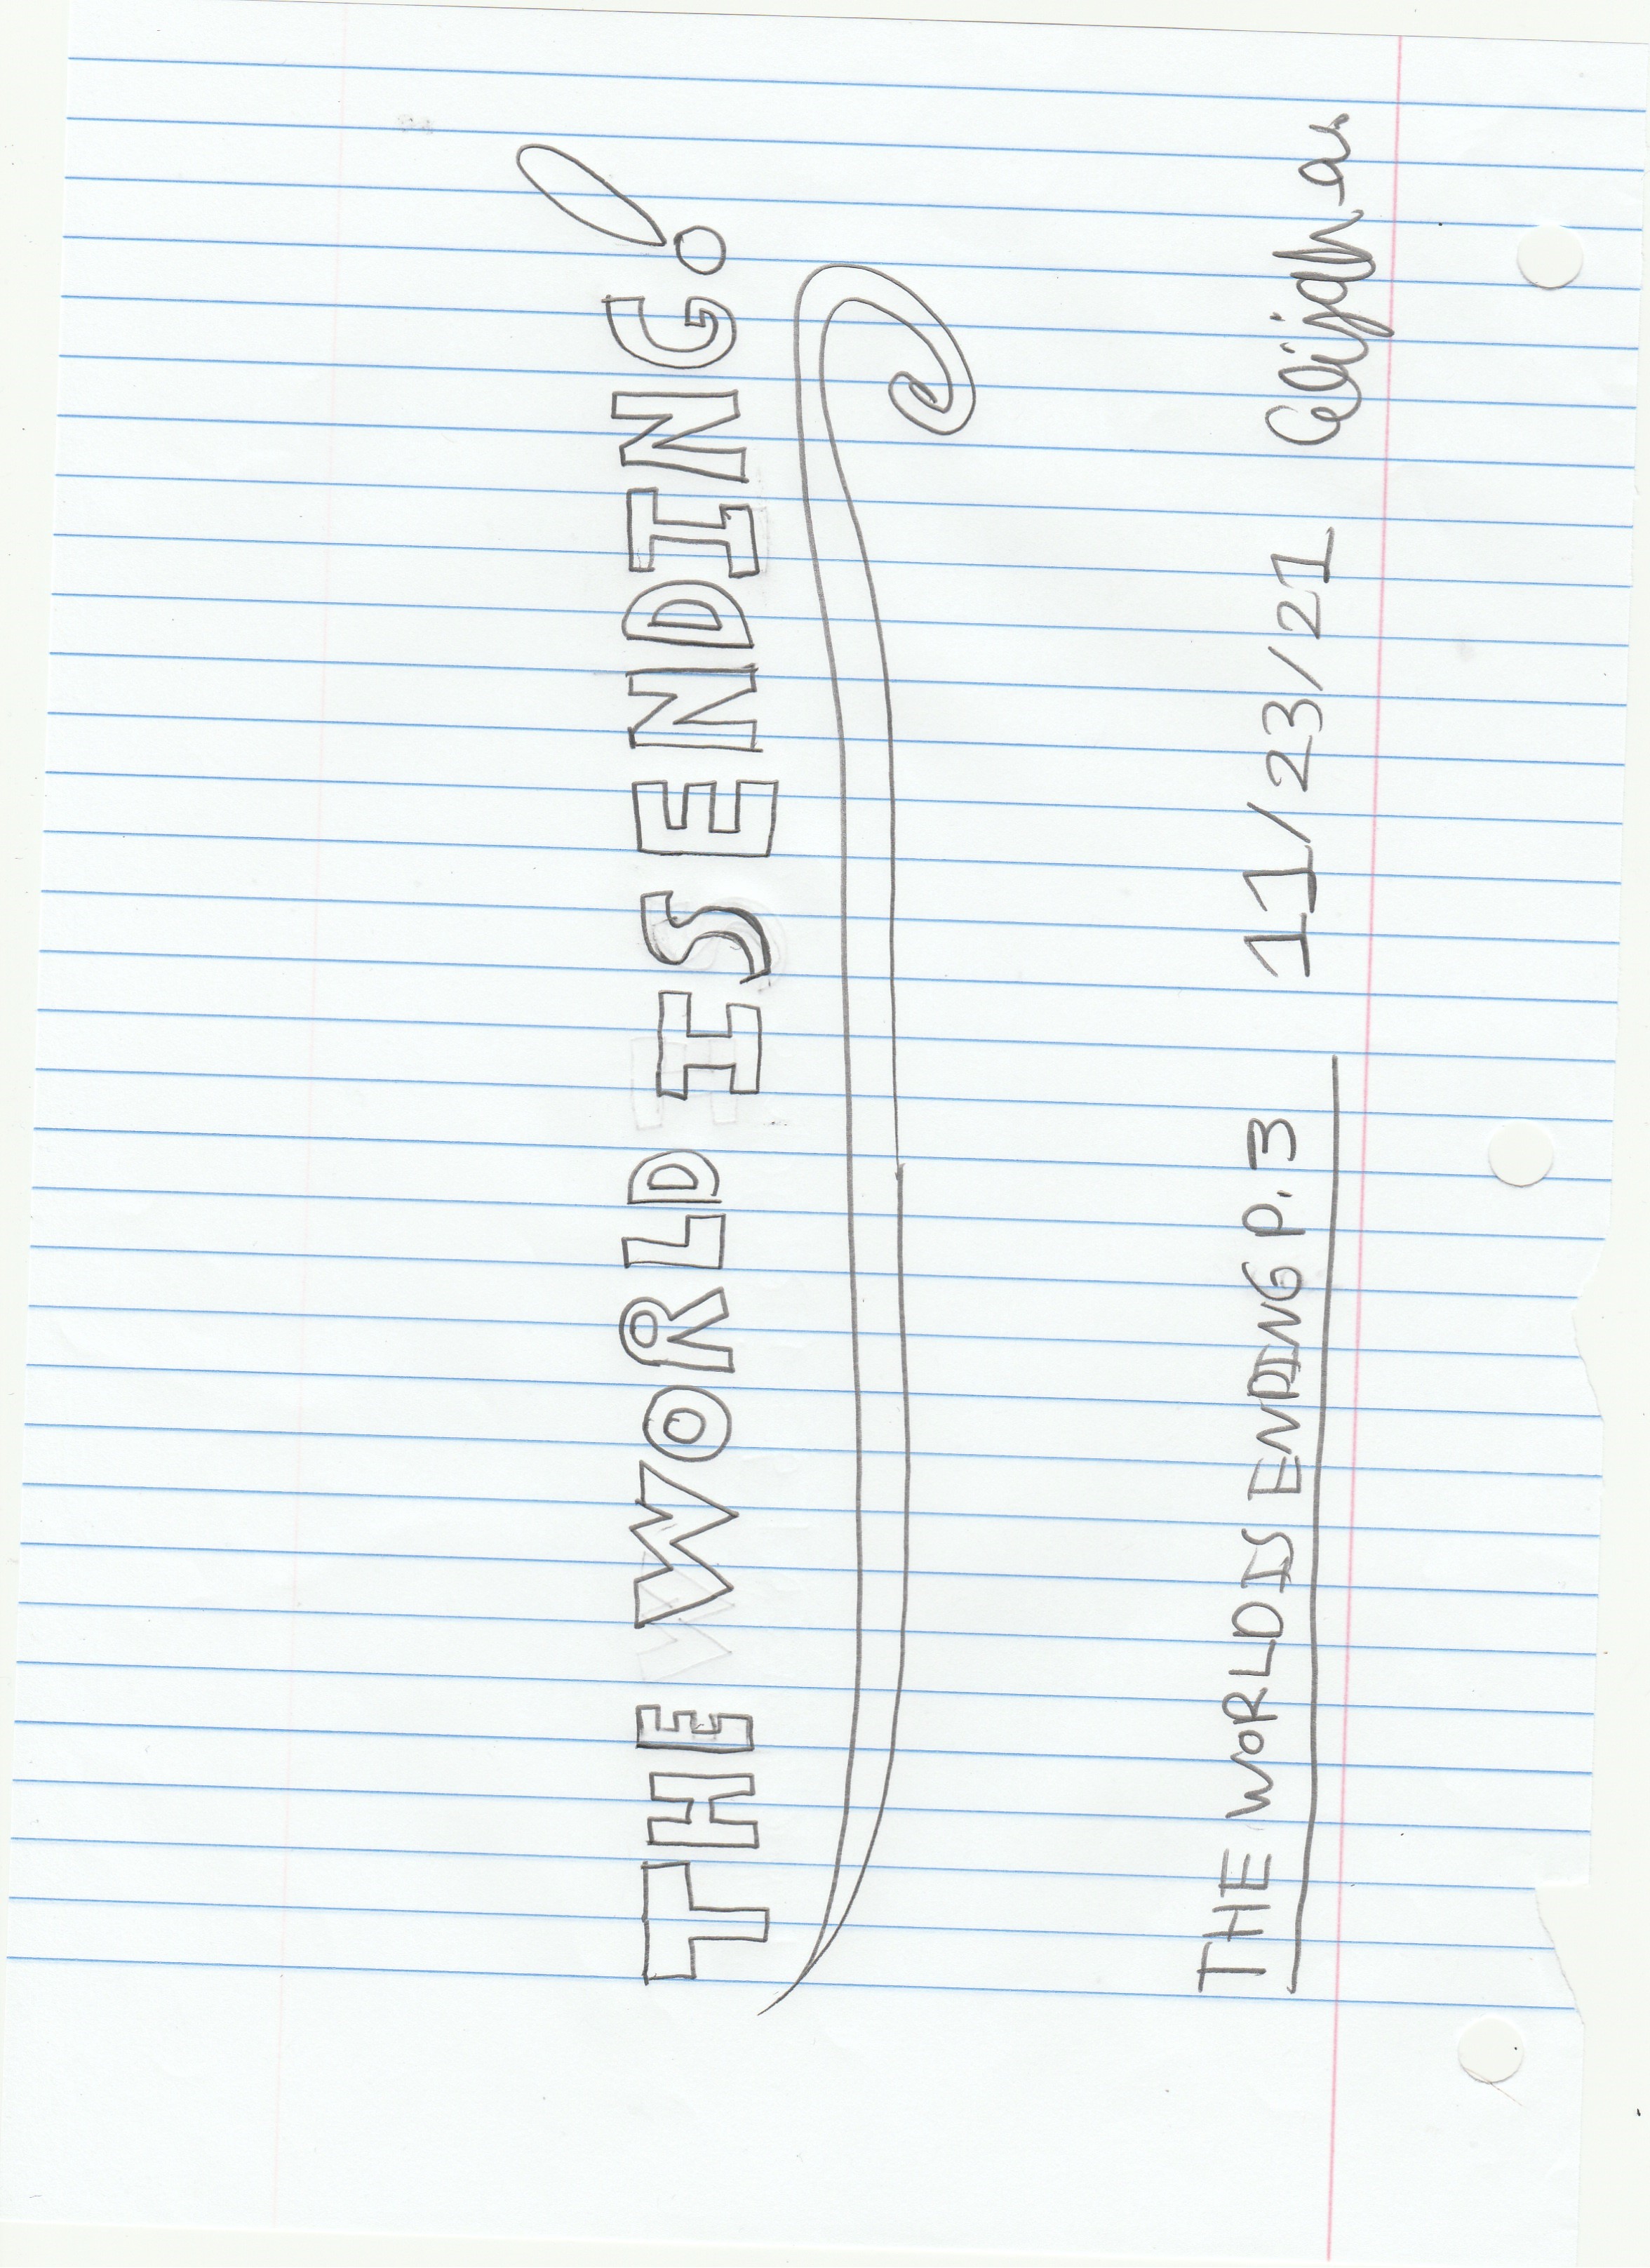 THE WORLD IS ENDING!
THE WORLD IS ENDING P. 3 11/23/21 Elijah a.